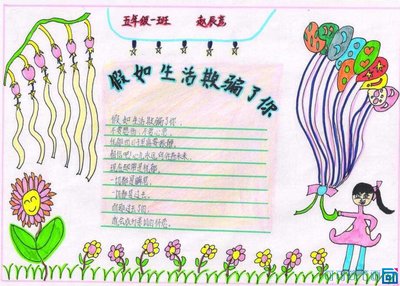 五年级一班 赵辰
假如生活欺骗了你
假如生活欺骗了你,
不要悲伤,不要心急。
忧郁的日子里需要镇静。
相信吧!心永远向往未来。
现在却常是忧郁。
一切都是瞬息,
一切都是过去。
过去了的,
就会成为亲切的怀恋。